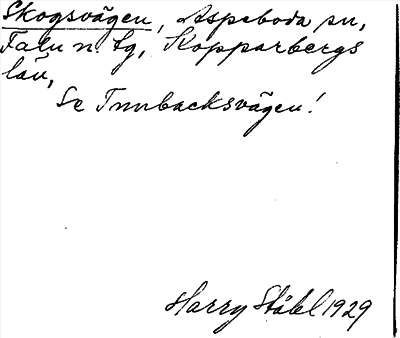 Skogsvägen, Aspeboda sn,
Falu n. tg, Kopparbergs
län,
Se Tunbacksvägen!
Harry Ståhl 1929